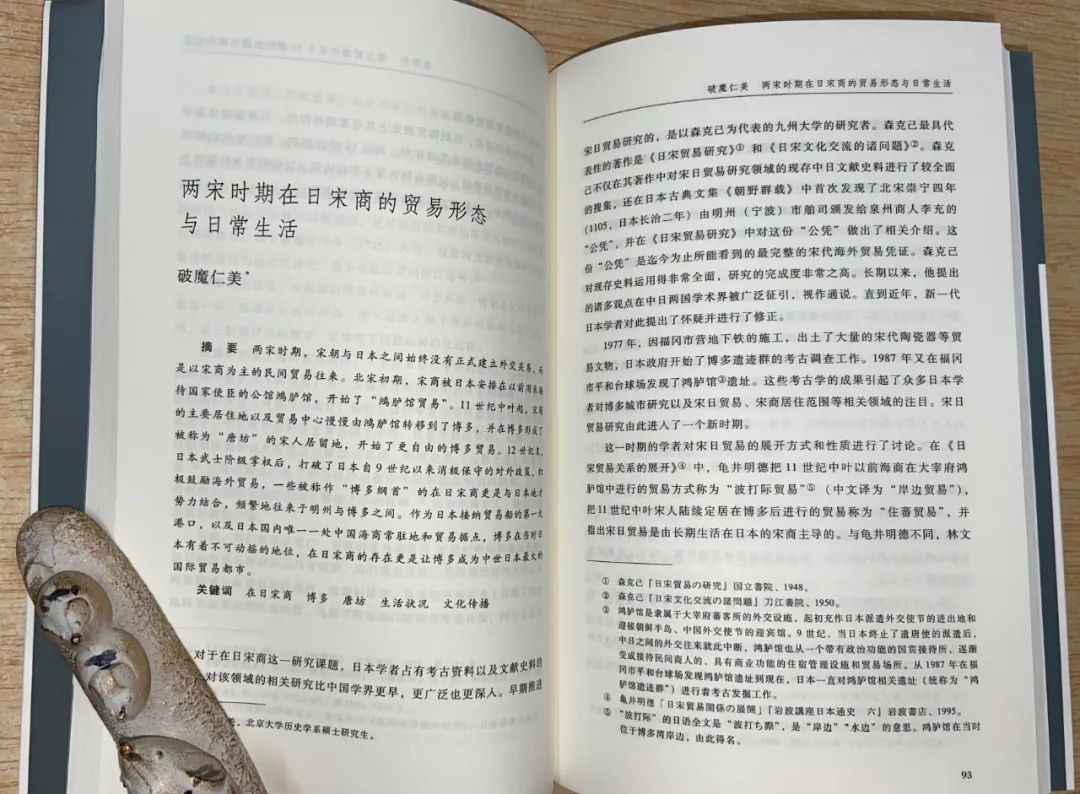 两宋时期在日宋商的贸易形态
与日常生活
破魔仁美*
摘 要 两宋时期，宋朝与日本之间始终没有正式建立外交关系，而
是以宋商为主的民间贸易往来。北宋初期，宋商被日本安排在以前用来接
待国家使臣的公馆鸿胪馆，开始了“鸿胪馆贸易”。11 世纪中叶起，宋商
的主要居住地以及贸易中心慢慢由鸿胪馆转移到了博多，并在博多形成了
被称为“唐坊”的宋人居留地，开始了更自由的博多贸易。12 世纪末，
日本武士阶级掌权后，打破了日本自 9 世纪以来消极保守的对外政策，积
极鼓励海外贸易，一些被称作“博多纲首”的在日宋商更是与日本地方
势力结合，频繁地往来于明州与博多之间。作为日本接纳贸易船的第一大
港口，以及日本国内唯一一处中国海商常驻地和贸易据点，博多在当时日
本有着不可动摇的地位，在日宋商的存在更是让博多成为中世日本最大的
国际贸易都市。
关键词 在日宋商 博多 唐坊 生活状况 文化传播
对于在日宋商这一研究课题，日本学者占有考古资料以及文献史料的
对该领域的相关研究比中国学界更早，更广泛也更深入。早期推进
美，北京大学历史学系硕士研究生。
破魔仁美 两宋时期在日宋商的贸易形态与日常生活
宋日贸易研究的，是以森克己为代表的九州大学的研究者。森克己最具代
表性的著作是《日宋贸易研究》① 和《日宋文化交流的诸问题》②。森克
己不仅在其著作中对宋日贸易研究领域的现存中日文献史料进行了较全面
的搜集，还在日本古典文集《朝野群载》中首次发现了北宋崇宁四年
（1105，日本长治二年）由明州（宁波）市舶司颁发给泉州商人李充的
“公凭”，并在《日宋贸易研究》中对这份“公凭”做出了相关介绍。这
份“公凭”是迄今为止所能看到的最完整的宋代海外贸易凭证。森克己
对现存史料运用得非常全面，研究的完成度非常之高。长期以来，他提出
的诸多观点在中日两国学术界被广泛征引，视作通说。直到近年，新一代
日本学者对此提出了怀疑并进行了修正。
1977 年，因福冈市营地下铁的施工，出土了大量的宋代陶瓷器等贸
易文物，日本政府开始了博多遗迹群的考古调查工作。1987 年又在福冈
市平和台球场发现了鸿胪馆③遗址。这些考古学的成果引起了众多日本学
者对博多城市研究以及宋日贸易、宋商居住范围等相关领域的注目。宋日
贸易研究由此进入了一个新时期。
这一时期的学者对宋日贸易的展开方式和性质进行了讨论。在《日
宋贸易关系的展开》④ 中，龟井明德把 11 世纪中叶以前海商在大宰府鸿
胪馆中进行的贸易方式称为“波打际贸易”⑤（中文译为“岸边贸易”），
把 11 世纪中叶宋人陆续定居在博多后进行的贸易称为“住蕃贸易”，并
指出宋日贸易是由长期生活在日本的宋商主导的。与龟井明德不同，林文
① 森克己『日宋貿易の研究』国立書院、1948。
② 森克己『日宋文化交流の諸問題』刀江書院、1950。
③ 鸿胪馆是隶属于大宰府蕃客所的外交设施，起初充作日本派遣外交使节的进出地和
迎接朝鲜半岛、中国外交使节的迎宾馆。9 世纪，当日本终止了遣唐使的派遣后，
中日之间的外交往来就此中断，鸿胪馆也从一个带有政治功能的国宾接待所，逐渐
变成接待民间商人的、具有商业功能的住宿管理设施和贸易场所。从 1987 年在福
冈市平和台球场发现鸿胪馆遗址到现在，日本一直对鸿胪馆相关遗址（统称为“鸿
胪馆遗迹群”）进行着考古发掘工作。
④ 亀井明徳「日宋貿易関係の展開」『岩波講座日本通史 六』岩波書店、1995。
⑤ “波打际”的日语全文是“波打ち際”，是“岸边”“水边”的意思。鸿胪馆在当时
位于博多湾岸边，由此得名。
93